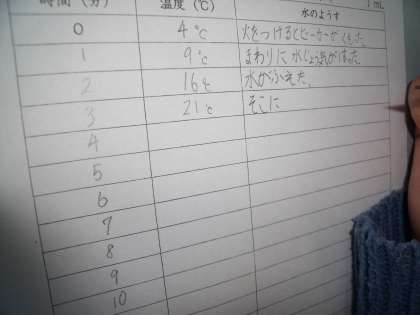 時間(分) 温度(℃) 水のようす 1mL
0 4℃ 火をつけるとビーカーがくもった。
1 9℃ まわりに水じょう気がはった。
2 16℃ 水がふえた。
3 21℃ そこに
4
5
6
7
8
9
10